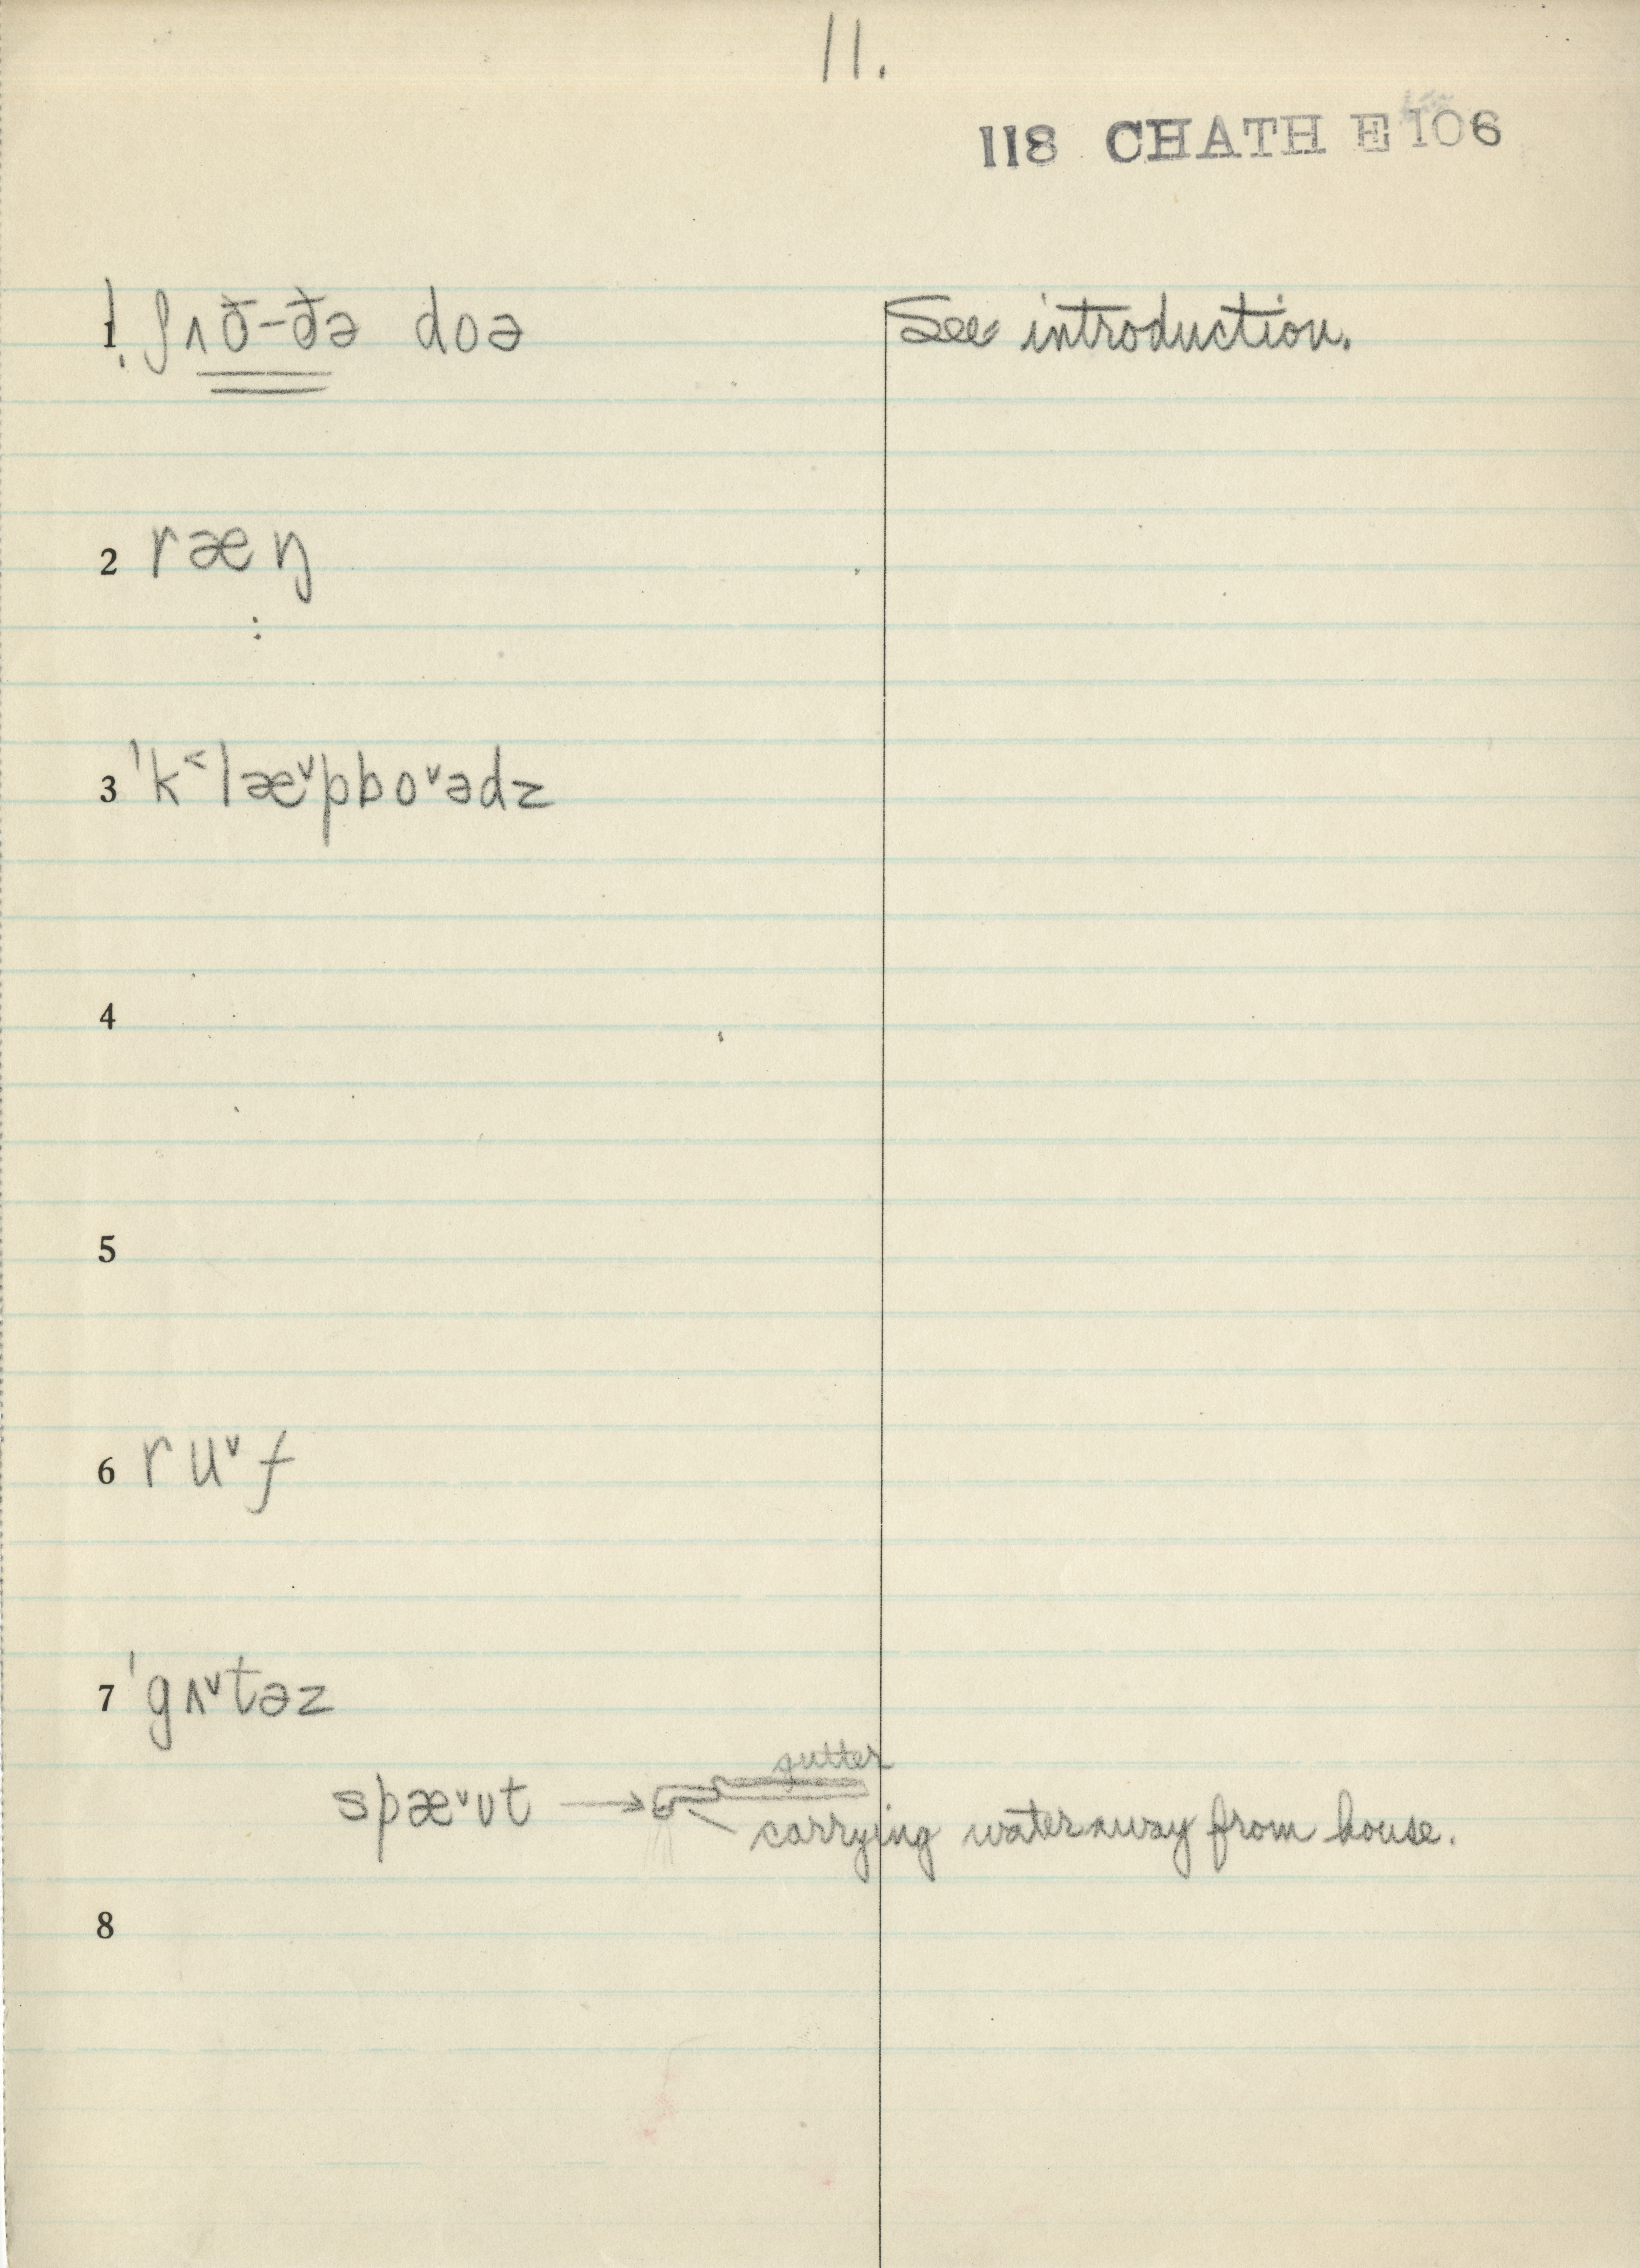 11.
118 CHATH E 106
1 ʃʌð-ðə doə See introduction.
2 ræŋ
:
3 ˈk˂læˇpboˇədz
4
5
6 ruˇf
7 ˈgʌˇtəz
gutter
spæˇʊt → carrying water away from house.
8